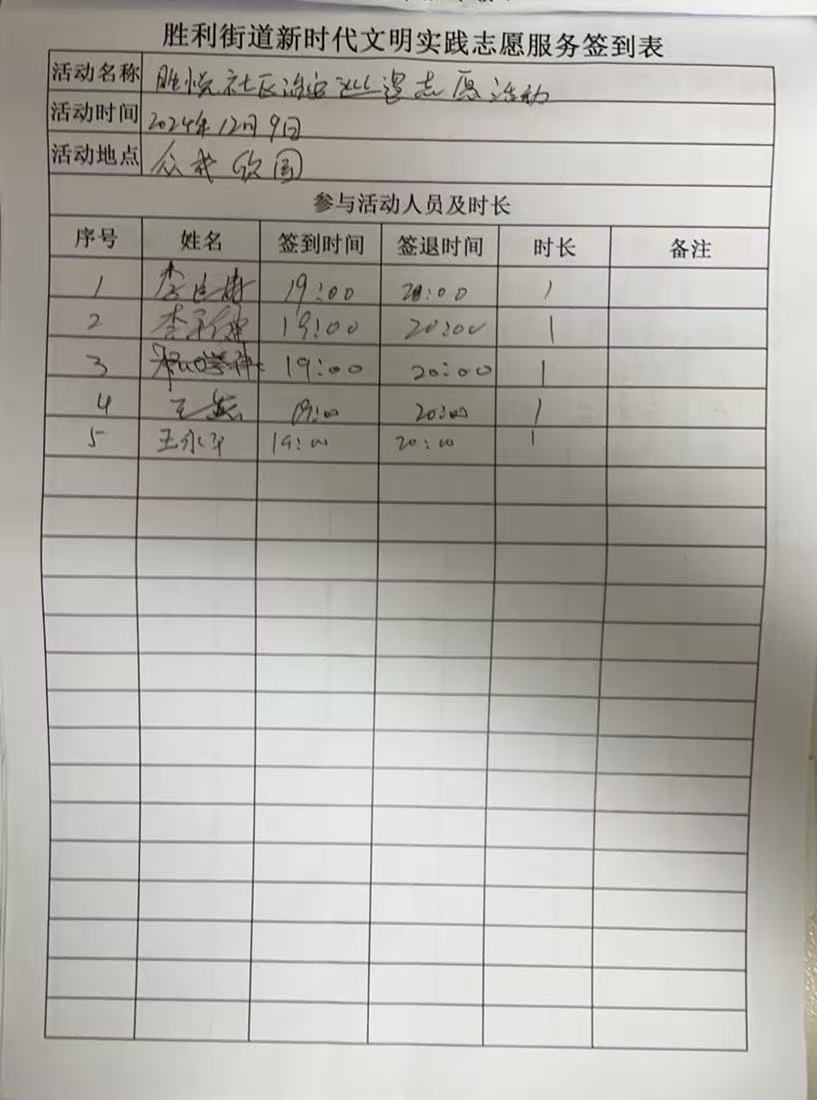 胜利街道新时代文明实践志愿服务签到表
活动名称 胜悦社区治安巡逻志愿活动
活动时间 2024年12月9日
活动地点 众成欣园
参与活动人员及时长
序号 姓名 签到时间 签退时间 时长 备注
1 李 19:00 20:00 1
2 李 19:00 20:00 1
3 19:00 20:00 1
4 王 19:00 20:00 1
5 王永军 19:00 20:00 1